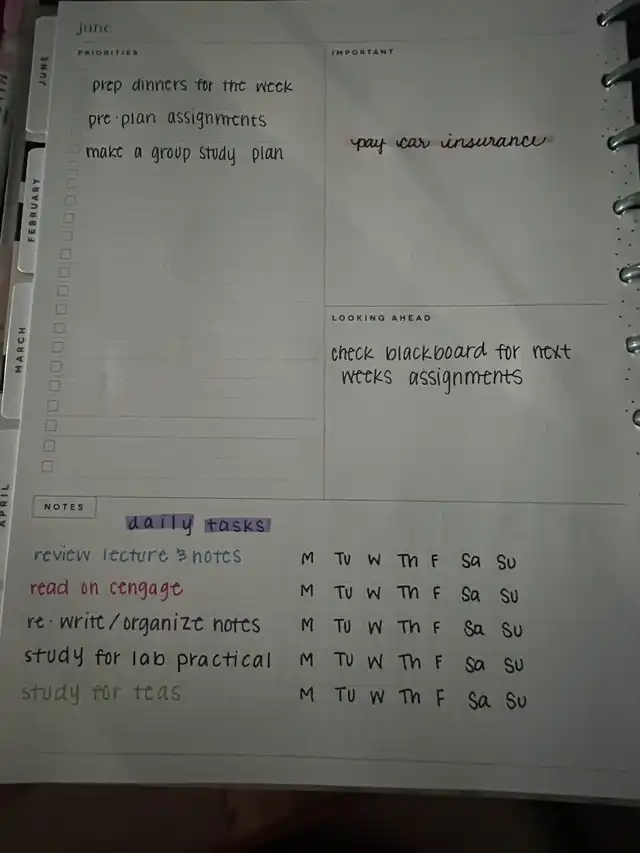 june
PRIORITIES
prep dinners for the week
pre-plan assignments
make a group study plan
IMPORTANT
pay car insurance
LOOKING AHEAD
check blackboard for next
weeks assignments
NOTES
daily tasks
review lecture & notes M Tu W Th F Sa Su
read on cengage M Tu W Th F Sa Su
re-write/organize notes M Tu W Th F Sa Su
study for lab practical M Tu W Th F Sa Su
study for teas M Tu W Th F Sa Su
JUNE
FEBRUARY
MARCH
APRIL